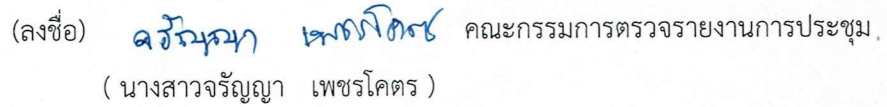 (ลงชื่อ) จรัญญา เพชรโคตร คณะกรรมการตรวจรายงานการประชุม
( นางสาวจรัญญา เพชรโคตร )